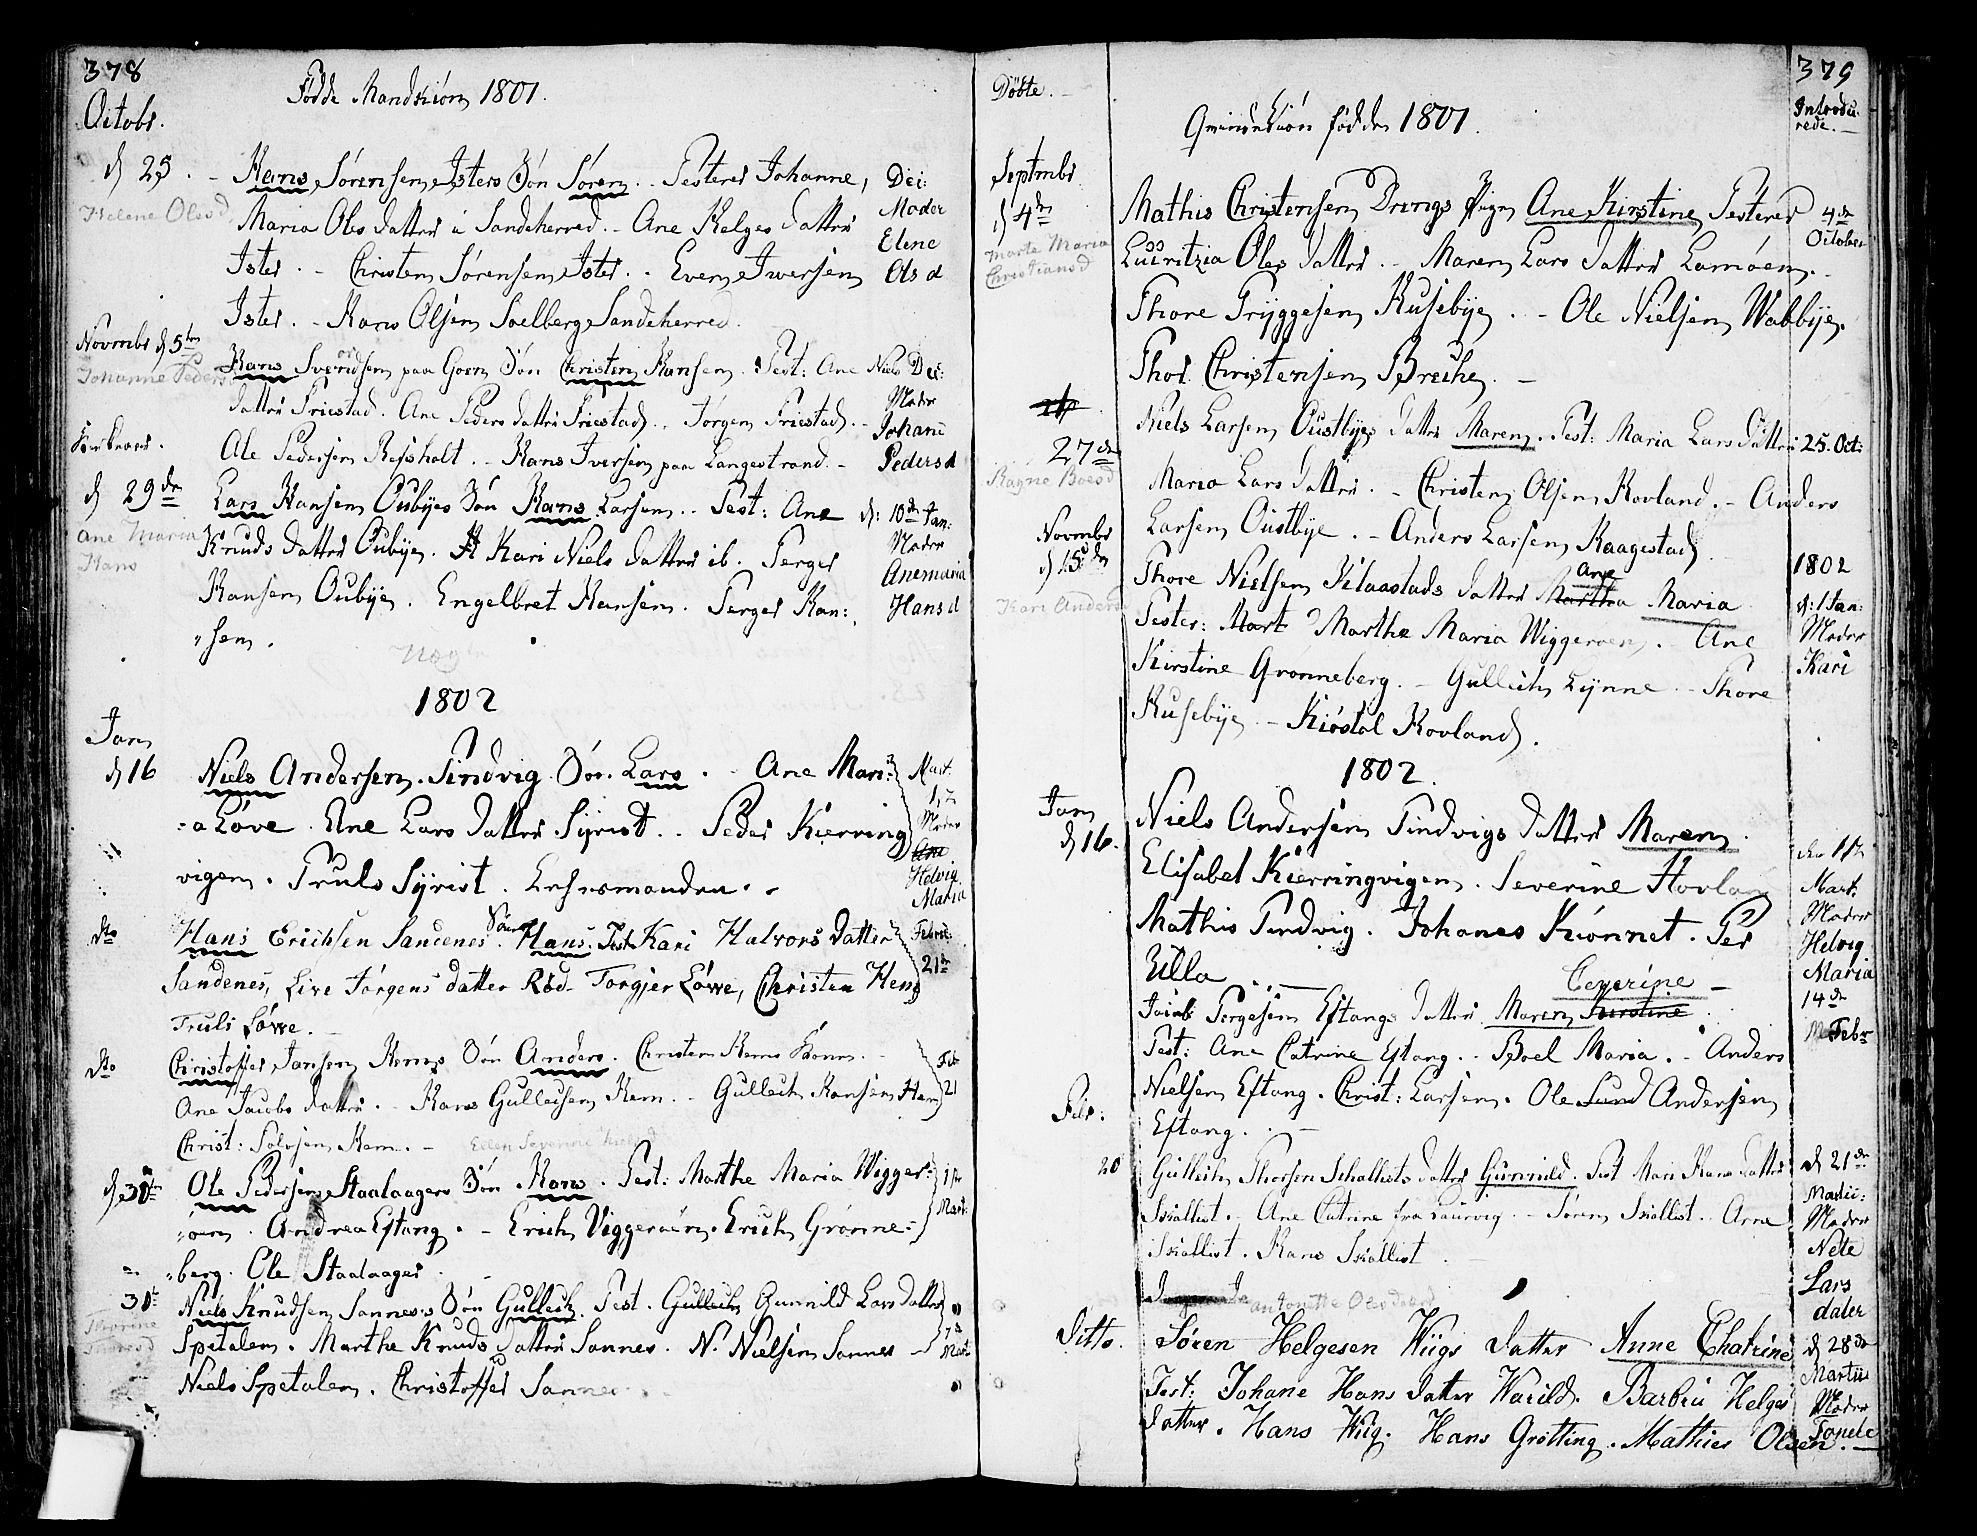 378
Octobr.
Födde Mandkiön 1801.
d 25. - Hans Sörensen Isters Sön Sören. Testerer Johanne,
Helene Olsd
Maria Olesdatter i Sandeherred. - Ane Helges datter
Ister. - Christen Sörensen Ister. - Even Iversen
Ister. - Hans Olsen Soelberg Sandeherred.
Dei:
Moder
Elene
Ols d
Novmbr d 5te
Johanne Peders
Hans Svendsen paa Goen Sön Christen Hansen. Test: Ane Niels
datter Friestad. Ane Peders datter Friestad. Jörgen Friestad. -
Ole Pedersen - Hans Iversen paa Langestrand. -
Dei:
Moder
Johane
Peders d
d 29de
Ane Maria
Hans
Lars Hansen Oubyes Sön Hans Larsen. Test: Ane
Knuds datter Oubye. Kari Niels datter ib. Terger
Hansen Oubye. Engelbret Hansen. Terger Han:
"sen.
d: 10de Jan:
Moder
Anemaria
Hans d
1802
Jan
d 16
Niels Andersen Tindvig Sön Lars. - Ane Mari:
:a Löve. Ane Lars datter Syrist. - Peder Kierring
vigen. Truls Syrist. Lensmanden. -
Mart:
Moder
Helvig
Maria
Dto
Hans Erichsen Sandenes Sön Hans. Test Kari Halvors datter
Sandenes, Live Jörgens datter Röd. Torgjer Löwe, Christen Hem
Truls Löwe. -
Febru:
21de
Dto
Christoffer Jansen Hems Sön Anders. Christen Hems Kone. -
Ane Jacobs datter. - Hans Gullecsen Hem. - Gullech Hansen Hem
Christ: Hem. -
Feb
21
d 30te
Ole Pedersen Staalaagers Sön Hans. Test: Marthe Maria Wigger:
:öen. Andrea Eftang. - Erich Viggeröen. Erich Grönne:
"berg. Ole Staalaager.
Mart:
30te
Niels Knudsen Sannes Sön Gullech. Test. Gunnild Lars datter
Spetalen. Marthe Knuds datter Sannes. N. Nielsen Sannes -
Niels Spetalen. Christoffer Sannes
7de
Mart
379
Döbte.
Qvindekiön födde 1801.
Introdu
rede. -
Septmbr
d 4de
Marte Maria
Christiansd
Mathis Christensen Drengs Pigen Ane Kirstine Testerer
Lucritzia Oles datter. - Maren Lars datter Lamöen. -
Thore Tryggesen Husebye. - Ole Nielsen Wabbye.
Thor Christensen Breche. -
4de
October
27de
Ragne Boesd
Niels Larsen Oustbyes datter Maren. Test: Maria Lars datter
Maria Lars datter. - Christen Olsen Hovland. - Anders
Larsen Oustbye. - Anders Larsen Raagestad
25. Oct:
Novmbr
d 15de
Kari Anders
Thore Nielsen Klaastads datter Ane Maria
Tester: Marthe Maria Wiggeroen. - Ane
Kirstine Grönneberg. - Gullech Lynne - Thore
Husebye. - Kiöstol Hovland.
1802
d: 1 Jan:
Moder
Kari
1802.
Jan
d 16.
Niels Andersen Tindvigs datter Maren.
Elisabet Kierringvigen. Severine Hovland
Mathis Tindvig. Johanes Kiönnet. Per
Ulla
den 1te
Mart:
Moder
Helvig
Maria
Ceverine -
Jacob Tergesen Eftangs datter Maren
Test: Ane Catrine Eftang. - Boel Maria. - Anders
Nielsen Eftang. Christ: Larsen. Ole Andersen
Eftang. -
14de
Febr
Feb:
20
Gullech Thorsen Schallists datter Gunnild. Test Mari Hans datter
Skallist. - Ane Catrine fra Laurvig. - Sören Skallist. Arne
Skallist. Hans Skallist
d 21de
Martii:
Moder
Nete
Lars
dater
Antonette Olesdatter
Ditto.
Sören Helgesen Wiigs datter Anne Chatrine
Test: Johane Hans datter Warild. Barbru Helges
datter. Hans Wiig. Hans Grötting. Mathies Olsen. -
d 28de
Martii
Moder